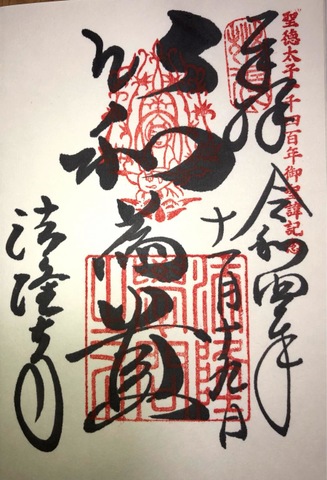 聖徳太子一千四百年御聖諱記念
奉拝
令和四年
十一月十九日
以和為貴
法隆寺